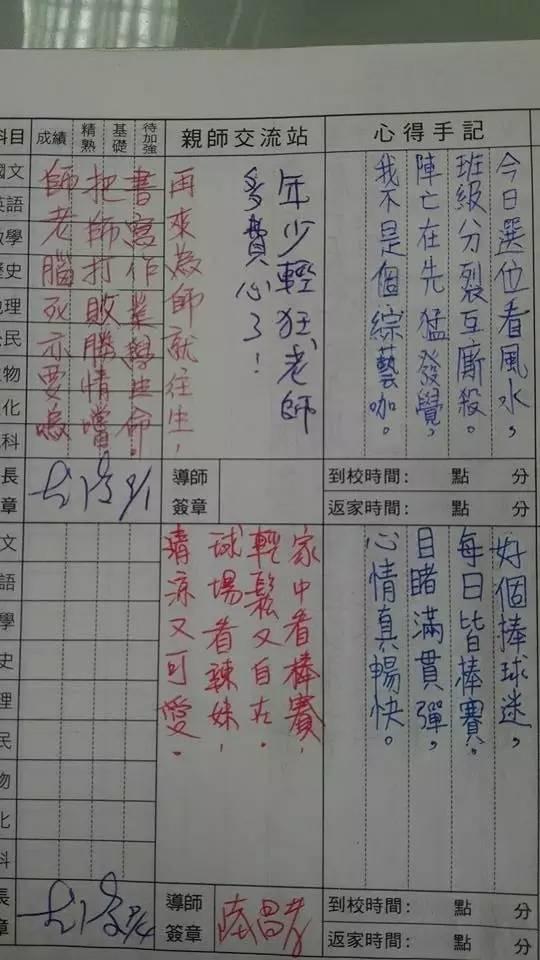 科目
成績
精熟
基礎
待加強
親師交流站
心得手記
今日選位看風水，
班級分裂互廝殺。
陣亡在先猛發覺，
我不是個綜藝咖。
年少輕狂，老師
多費心了！
再來為師就往生，
書寫作業學生命。
把師打敗勝情噹
師老腦死亦要嗚
國文
英語
數學
歷史
地理
公民
生物
理化
地科
9/1
導師
簽章
到校時間： 點 分
返家時間： 點 分
好個棒球迷，
每日皆棒賽。
目睹滿貫彈，
心情真暢快。
家中看棒賽，
輕鬆又自在。
球場看辣妹，
清涼又可愛。
文
語
學
史
理
民
物
化
科
長
章
9/4
導師
簽章
到校時間： 點 分
返家時間： 點 分